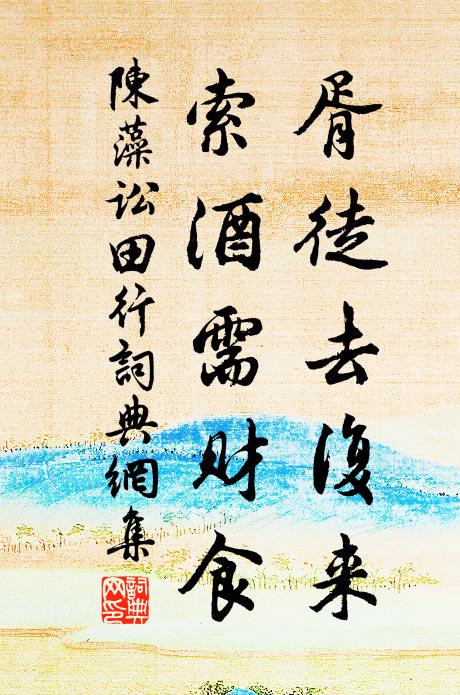 胥徒去復来
索酒需財食
陳藻訟田行詞典網集
詞典